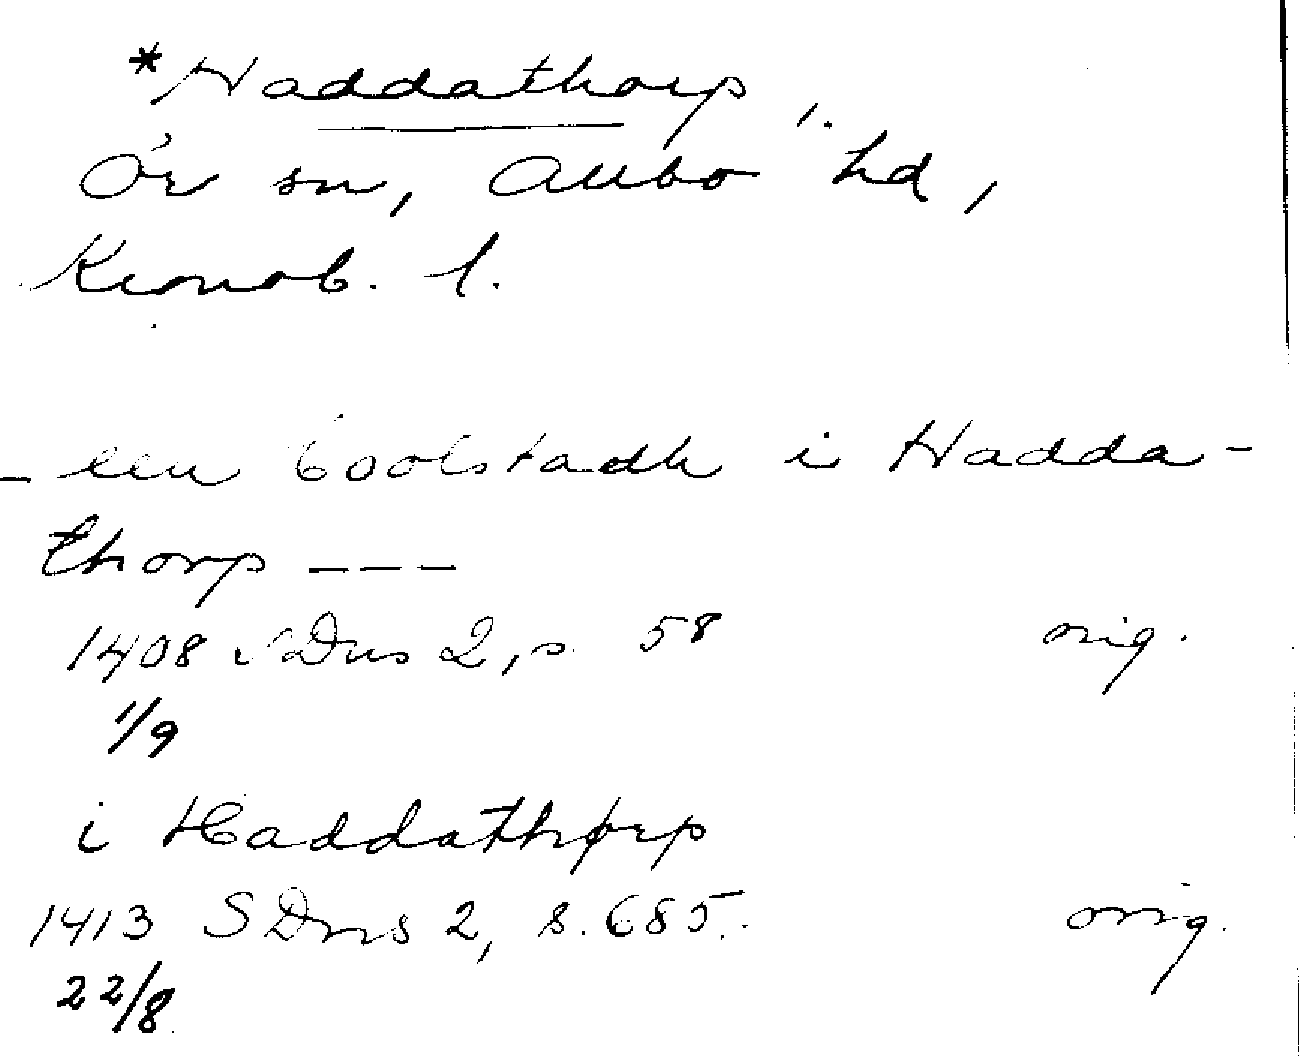 *Haddathorp
Ör sn, Allbo hd,
Kronob. l.
- een boolstadh i Hadda-
thorp ---
1408 SDns 2, s. 58 orig.
1/9
i Haddathørp
1413 SDns 2, s. 685. orig.
22/8